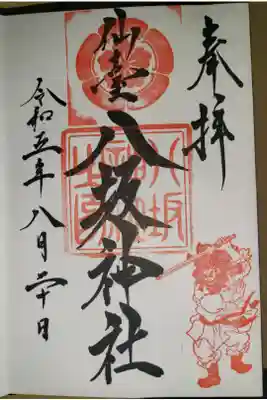 奉拝
仙臺
八坂神社
令和五年八月二十日